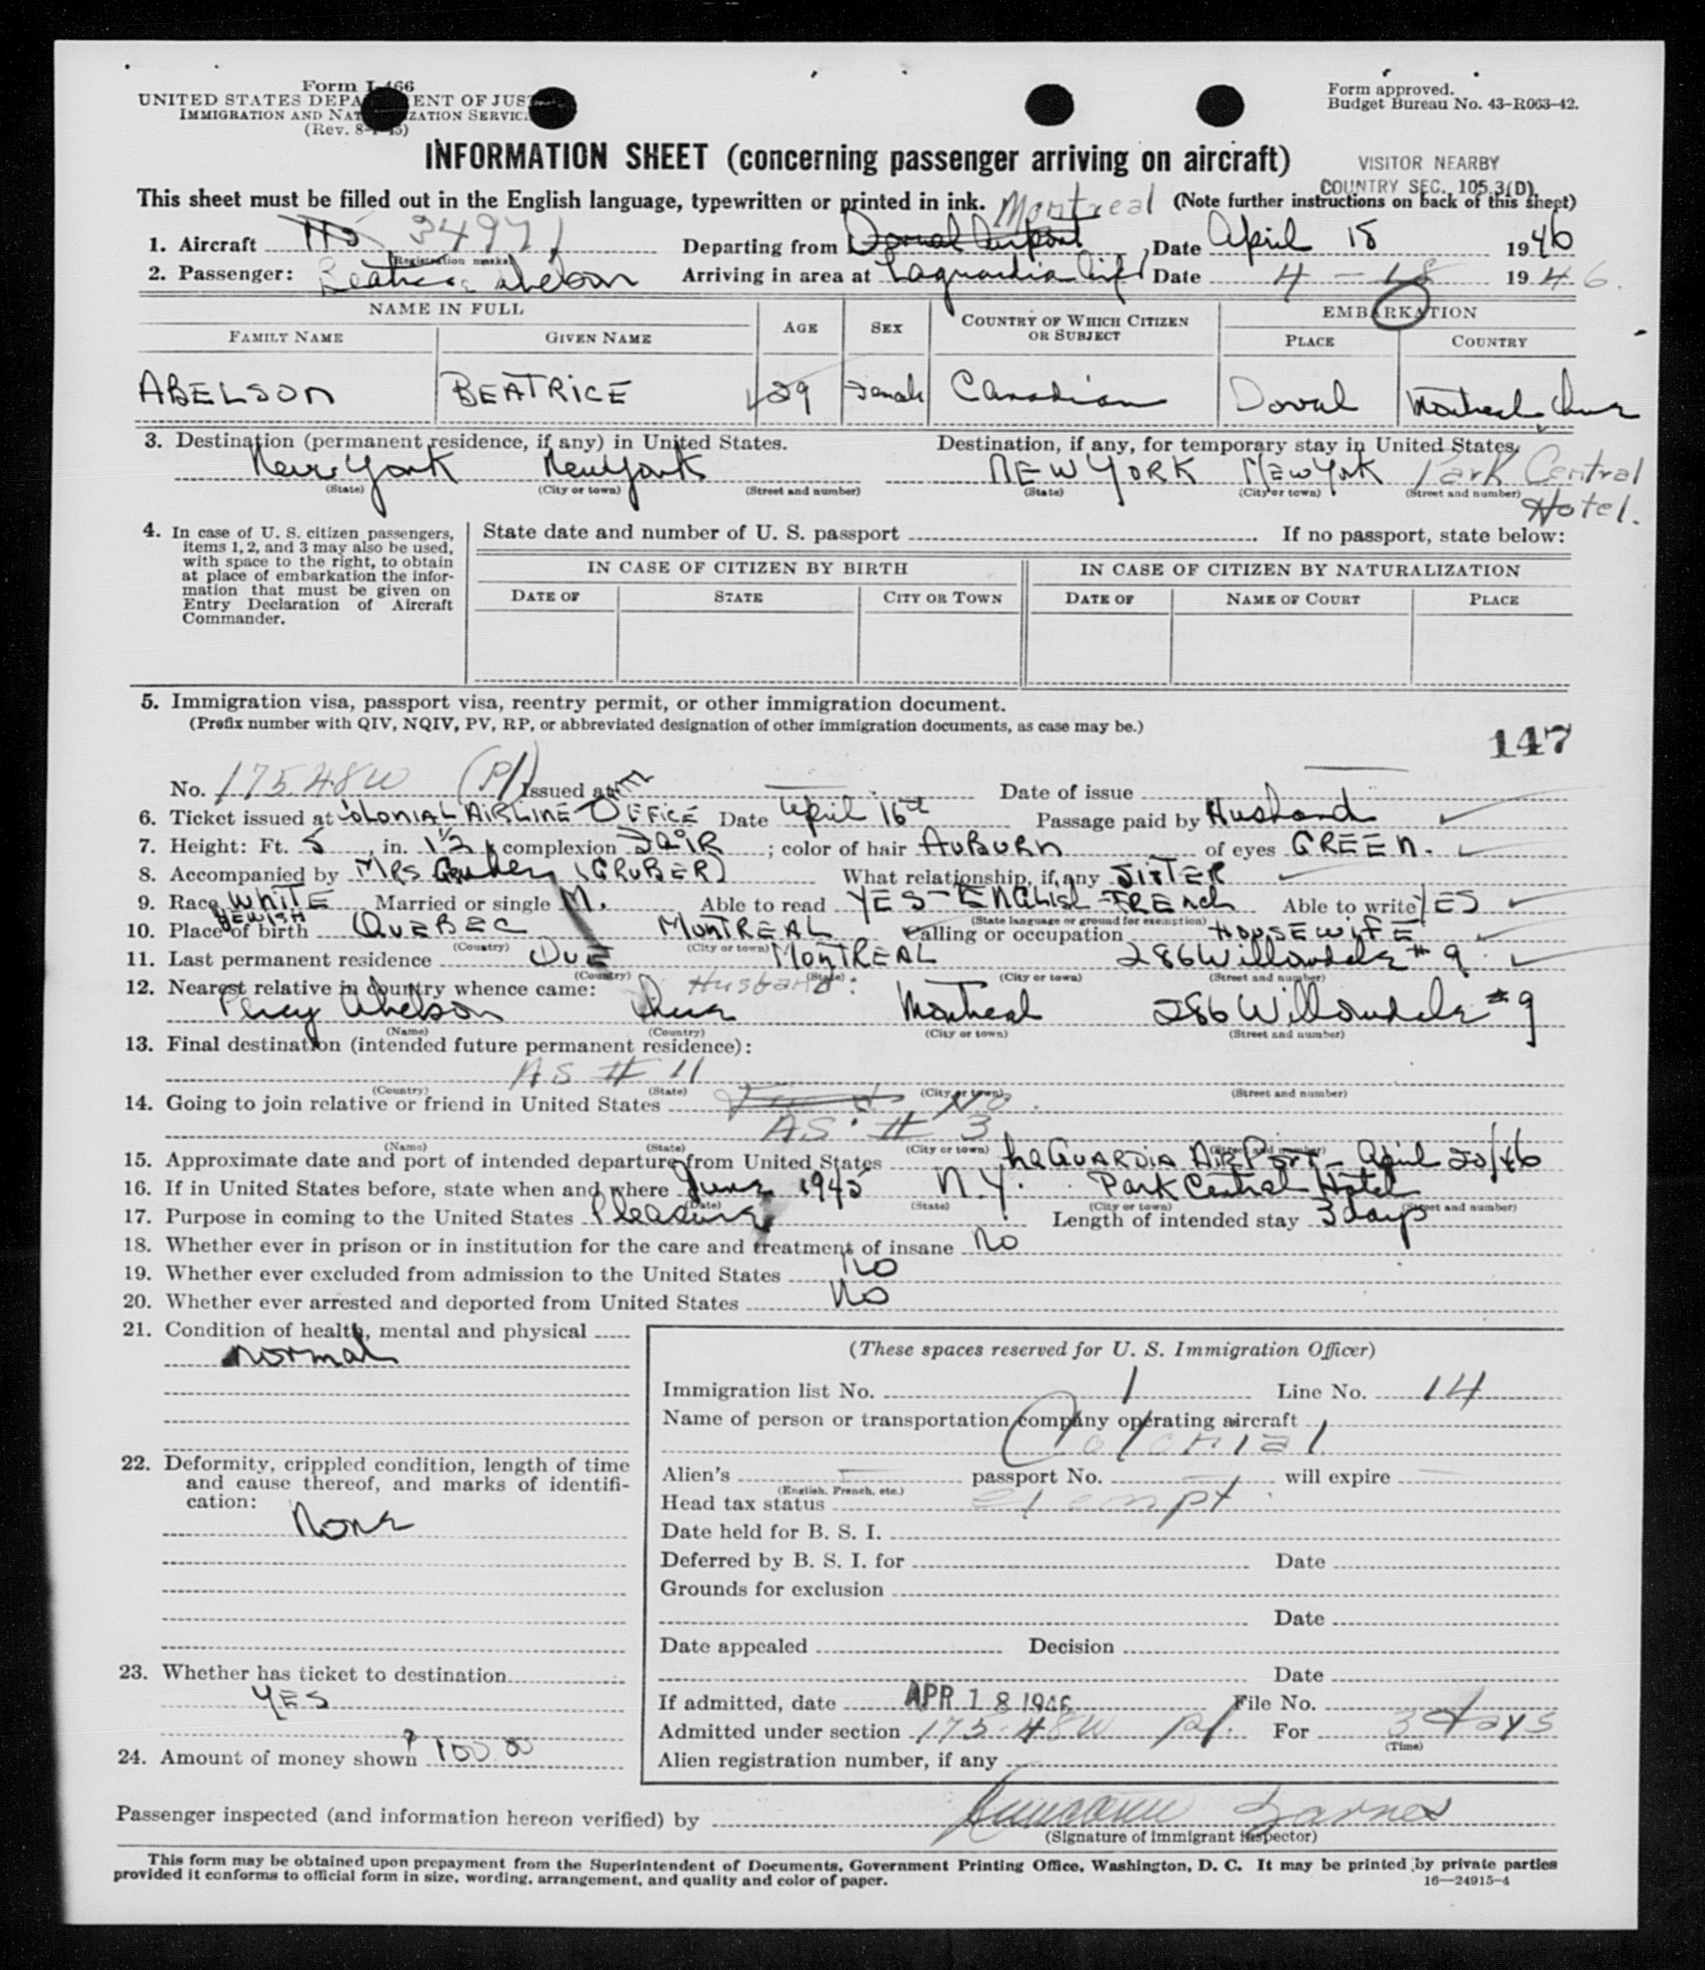 Form I-466
UNITED STATES DEPARTMENT OF JUSTICE
IMMIGRATION AND NATURALIZATION SERVICE
(Rev. 8-1-45)
Form approved.
Budget Bureau No. 43-R063-42.
INFORMATION SHEET (concerning passenger arriving on aircraft)
VISITOR NEARBY
COUNTRY SEC. 105.3(D)
This sheet must be filled out in the English language, typewritten or printed in ink. Montreal (Note further instructions on back of this sheet)
1. Aircraft 34971 Departing from Dorval Airport, Date April 18 1946
(Registration marks)
2. Passenger: Beatrice Abelson Arriving in area at Laguardia Date 4-18 1946.
NAME IN FULL AGE SEX COUNTRY OF WHICH CITIZEN OR SUBJECT EMBARKATION
FAMILY NAME GIVEN NAME PLACE COUNTRY
ABELSON BEATRICE 29 Female Canadian Dorval Montreal Que
3. Destination (permanent residence, if any) in United States. Destination, if any, for temporary stay in United States.
New York New York NEW YORK New York Park Central
(State) (City or town) (Street and number) (State) (City or town) (Street and number)
Hotel.
4. In case of U. S. citizen passengers, items 1, 2, and 3 may also be used, with space to the right, to obtain at place of embarkation the information that must be given on Entry Declaration of Aircraft Commander.
State date and number of U. S. passport If no passport, state below:
IN CASE OF CITIZEN BY BIRTH IN CASE OF CITIZEN BY NATURALIZATION
DATE OF STATE CITY OR TOWN DATE OF NAME OF COURT PLACE
5. Immigration visa, passport visa, reentry permit, or other immigration document.
(Prefix number with QIV, NQIV, PV, RP, or abbreviated designation of other immigration documents, as case may be.)
147
No. 175.48W (P1) Issued at Date of issue
6. Ticket issued at COLONIAL AIRLINE OFFICE Date April 16th Passage paid by Husband
7. Height: Ft. 5, in. 1½; complexion FAIR; color of hair AUBURN of eyes GREEN.
8. Accompanied by MRS Gruber (GRUBER) What relationship, if any SISTER
9. Race WHITE Married or single M. Able to read YES - ENGLISH - FRENCH Able to write YES
JEWISH (State language or ground for exemption)
10. Place of birth QUEBEC MONTREAL Calling or occupation HOUSEWIFE
(Country) (City or town)
11. Last permanent residence QUE MONTREAL 286 Willowdale #9
(Country) (State) (City or town) (Street and number)
12. Nearest relative in country whence came: Husband:
Percy Abelson Que Montreal 286 Willowdale #9
(Name) (Country) (City or town) (Street and number)
13. Final destination (intended future permanent residence):
AS # 11
(Country) (State) (City or town) (Street and number)
14. Going to join relative or friend in United States No.
AS # 3
(Name) (State) (City or town) (Street and number)
15. Approximate date and port of intended departure from United States LaGUARDIA AIRPORT - April 20/46
16. If in United States before, state when and where June 1945 N.Y. Park Central Hotel
(Date) (State) (City or town) (Street and number)
17. Purpose in coming to the United States Pleasure Length of intended stay 3 days
18. Whether ever in prison or in institution for the care and treatment of insane No
19. Whether ever excluded from admission to the United States No
20. Whether ever arrested and deported from United States No
21. Condition of health, mental and physical
normal
22. Deformity, crippled condition, length of time and cause thereof, and marks of identification:
None
23. Whether has ticket to destination
YES
24. Amount of money shown 100.00
(These spaces reserved for U. S. Immigration Officer)
Immigration list No. 1 Line No. 14
Name of person or transportation company operating aircraft
Colonial
Alien's passport No. will expire
(English, French, etc.)
Head tax status exempt
Date held for B. S. I.
Deferred by B. S. I. for Date
Grounds for exclusion
Date
Date appealed Decision
Date
If admitted, date APR 18 1946 File No.
Admitted under section 175.48W P1. For 3 days
(Time)
Alien registration number, if any
Passenger inspected (and information hereon verified) by
(Signature of immigrant inspector)
This form may be obtained upon prepayment from the Superintendent of Documents, Government Printing Office, Washington, D. C. It may be printed by private parties
provided it conforms to official form in size, wording, arrangement, and quality and color of paper.
16—24915-4